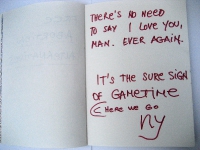 THERE'S NO NEED
TO SAY I LOVE YOU,
MAN. EVER AGAIN.
IT'S THE SURE SIGN
OF GAMETIME
HERE WE GO
NY